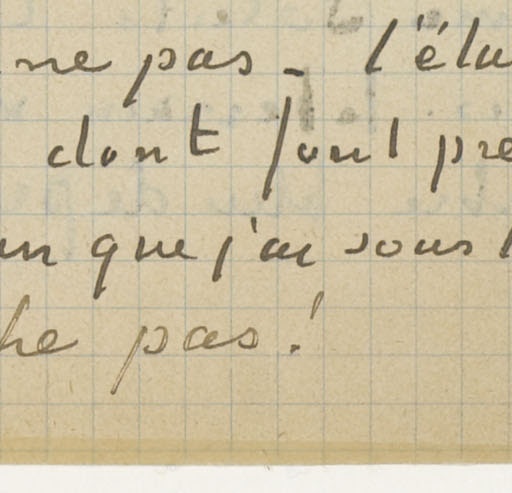 ne pas - l'éla
dont font pre
que j'ai sous l
he pas!